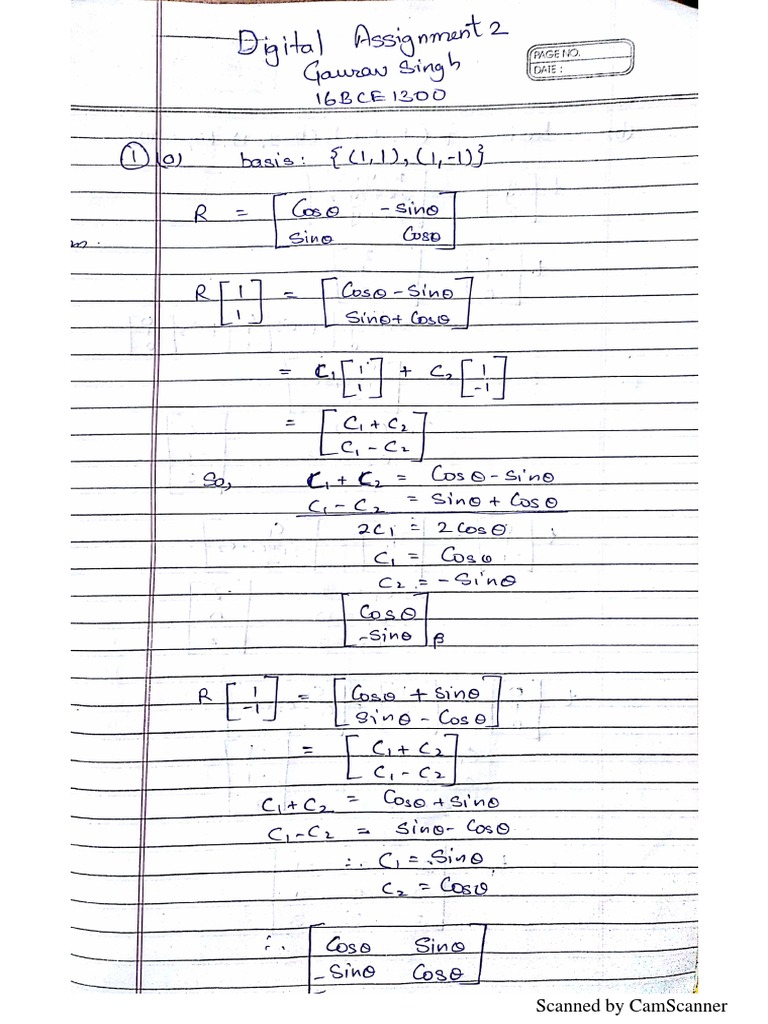 Digital Assignment 2
Gaurav Singh
16BCE1300
PAGE NO.
DATE :
① (a) basis: {(1,1),(1,-1)}
R = [ Cosθ -sinθ
sinθ Cosθ ]
m.
R [ 1 1 ] = [ Cosθ - Sinθ
Sinθ + Cosθ ]
= C₁ [ 1 1 ] + C₂ [ 1 -1 ]
= [ C₁ + C₂
C₁ - C₂ ]
So, C₁ + C₂ = Cosθ - Sinθ
C₁ - C₂ = Sinθ + Cosθ
2C₁ = 2Cosθ
C₁ = Cosθ
C₂ = -Sinθ
[ Cosθ
-Sinθ ] β
R [ 1 -1 ] = [ Cosθ + Sinθ
Sinθ - Cosθ ]
= [ C₁ + C₂
C₁ - C₂ ]
C₁ + C₂ = Cosθ + Sinθ
C₁ - C₂ = Sinθ - Cosθ
∴ C₁ = Sinθ
C₂ = Cosθ
∴ [ Cosθ Sinθ
-Sinθ Cosθ ]
Scanned by CamScanner